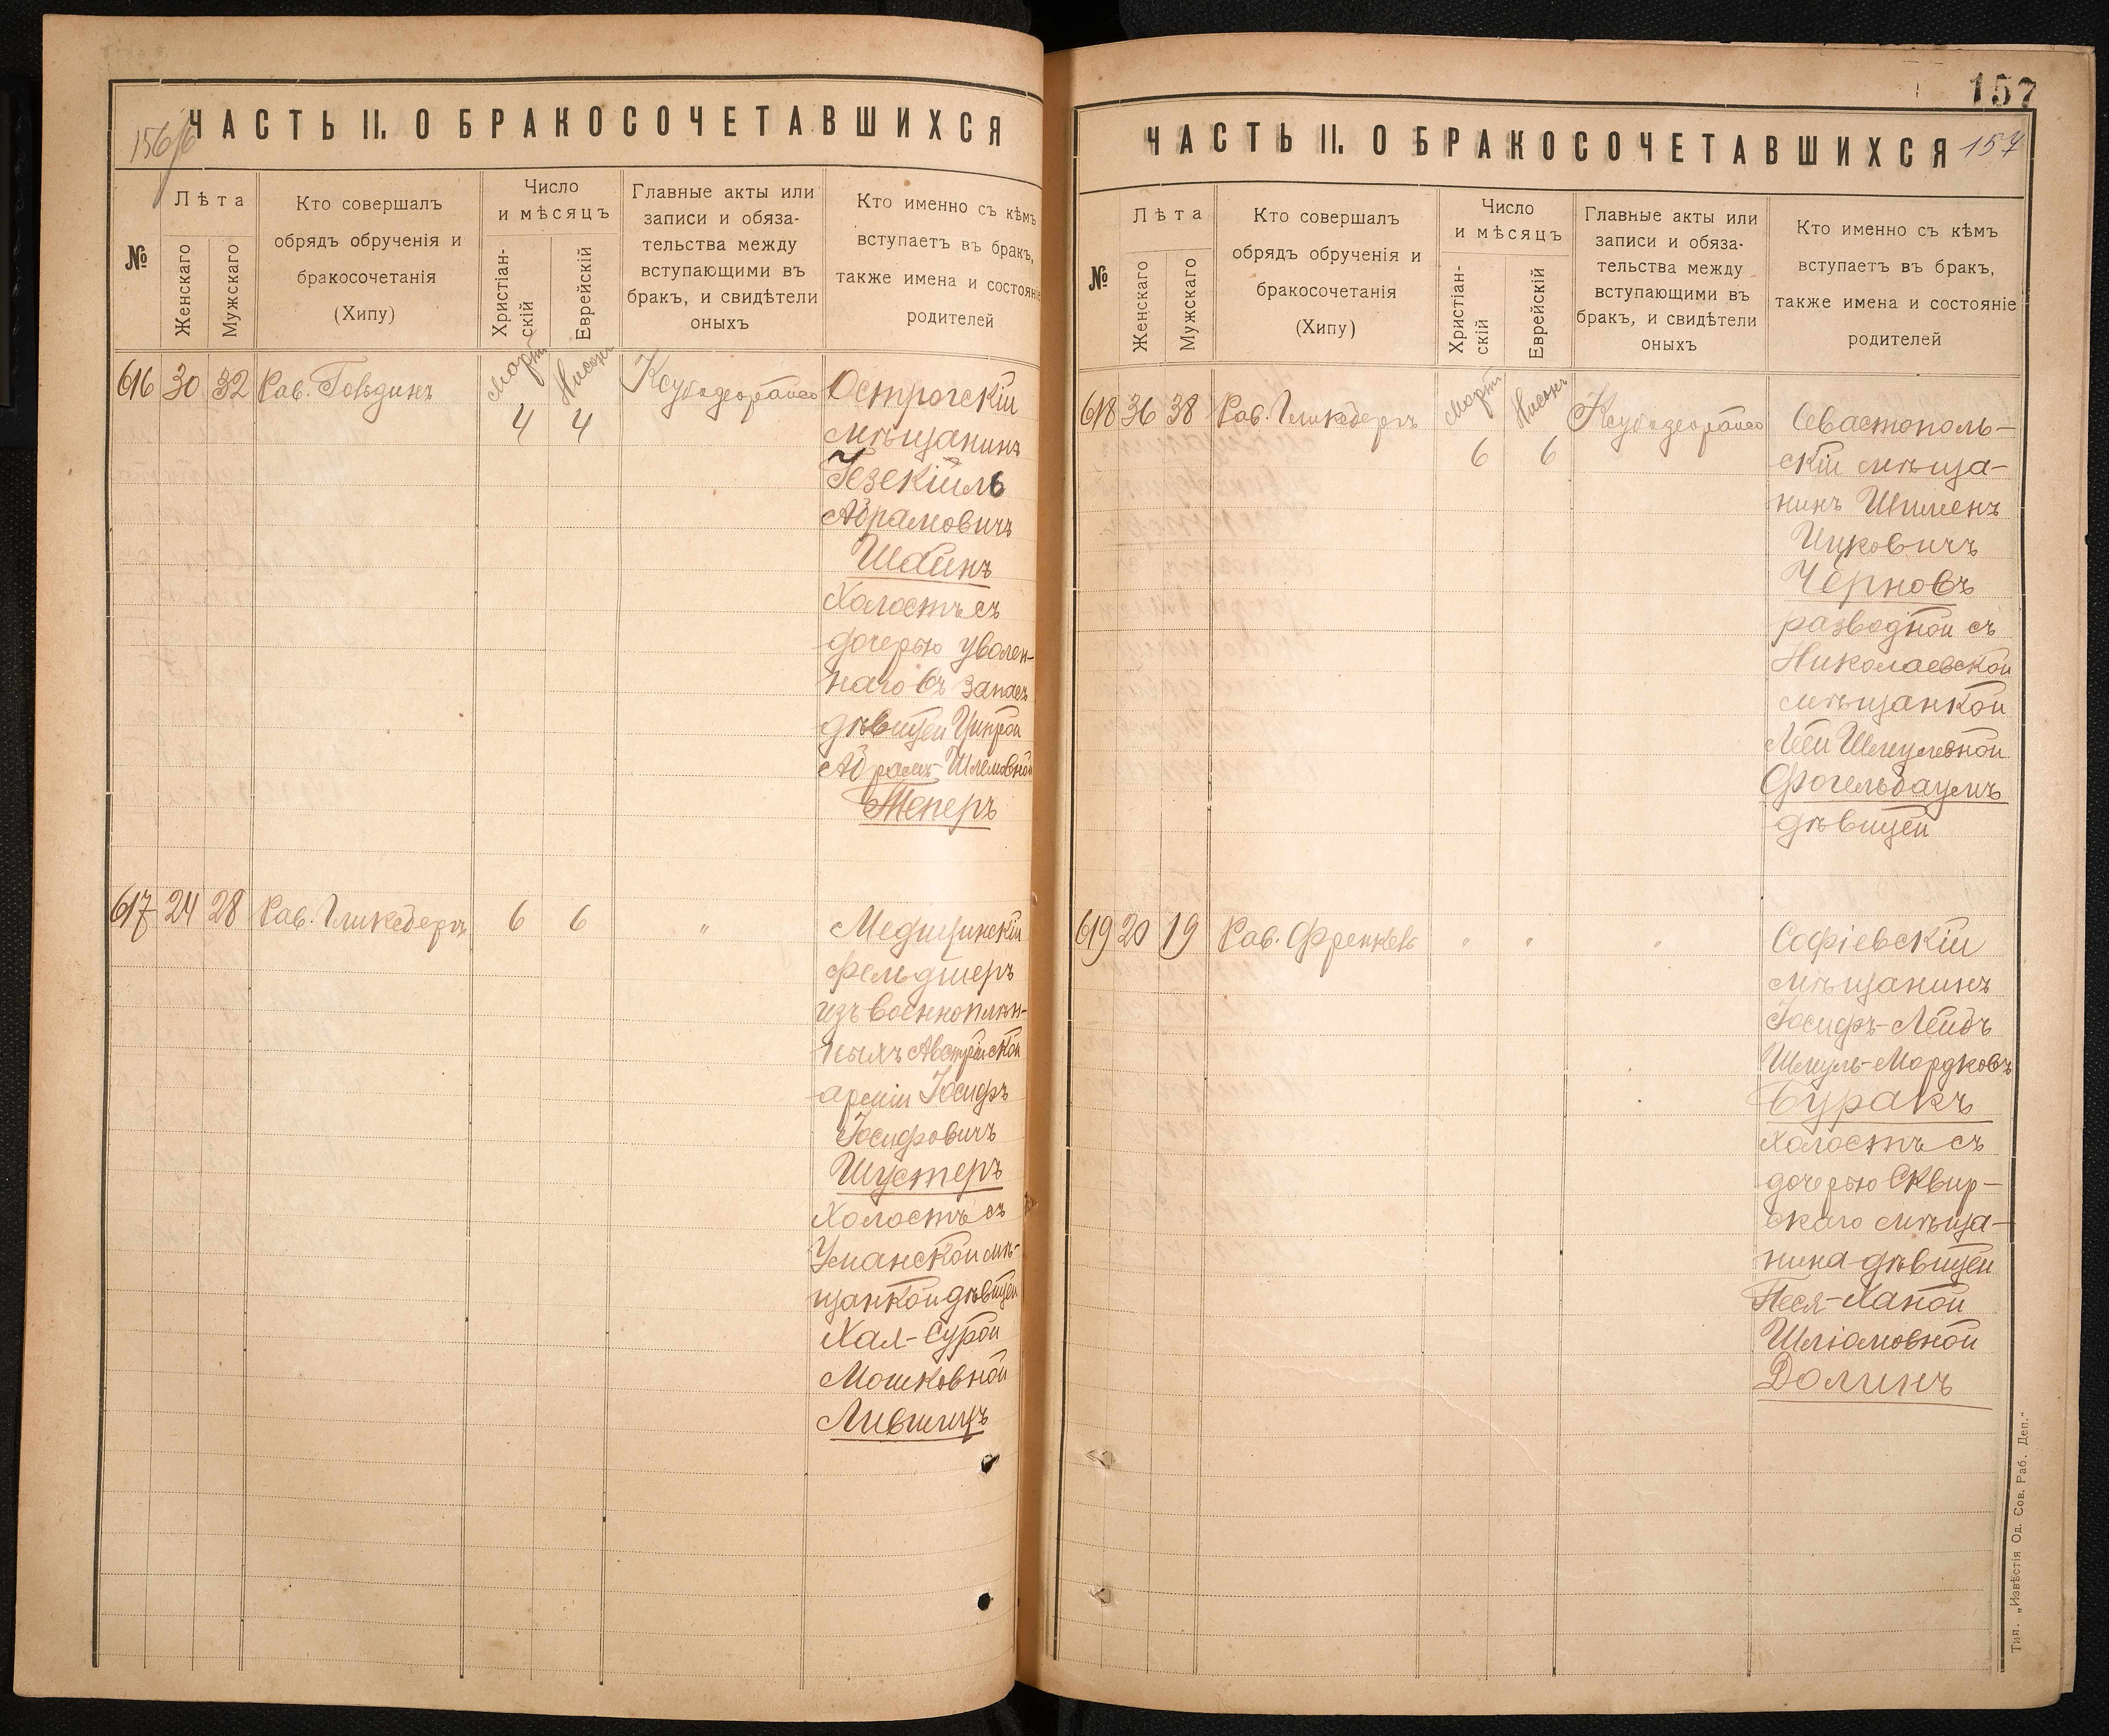 156об
ЧАСТЬ II. О БРАКОСОЧЕТАВШИХСЯ
№
Лѣта
Женскаго
Мужскаго
Кто совершалъ
обрядъ обрученія и
бракосочетанія
(Хипу)
Число
и мѣсяцъ
Христіан-
скій
Еврейскій
Главные акты или
записи и обяза-
тельства между
вступающими въ
бракъ, и свидѣтели
оныхъ
Кто именно съ кѣмъ
вступаетъ въ бракъ,
также имена и состояніе
родителей
616 30 32 Рав. Март Нисонъ
4 4
Острогскій
мѣщанинъ
Іезекіиль
Абрамовичъ
Шейнъ
холостъ съ
дочерью уволен-
наго въ запасъ
дѣвицей
Абрамъ-Шлемовной
617 24 28 Рав. Гликсбергъ 6 6 "
Медицинскій
фельдшеръ
изъ военноплѣн-
ныхъ Австрійской
арміи Іосифъ
Іосифовичъ
Шустеръ
холостъ съ
Уманской мѣ-
щанкой дѣвицей
Хая-Сурой
Мошковной
Лившицъ
157
ЧАСТЬ II. О БРАКОСОЧЕТАВШИХСЯ
157
№
Лѣта
Женскаго
Мужскаго
Кто совершалъ
обрядъ обрученія и
бракосочетанія
(Хипу)
Число
и мѣсяцъ
Христіан-
скій
Еврейскій
Главные акты или
записи и обяза-
тельства между
вступающими въ
бракъ, и свидѣтели
оныхъ
Кто именно съ кѣмъ
вступаетъ въ бракъ,
также имена и состояніе
родителей
618 36 38 Рав. Гликсбергъ Март Нисонъ
6 6
Севастополь-
скій мѣща-
нинъ Шименъ
Ицковичъ
Черновъ
разводной съ
Николаевской
мѣщанкой
Леей Шмулевной
Фогельбаумъ
дѣвицей
619 20 19 Рав. Френкель " " "
Софіевскій
мѣщанинъ
Іосифъ-Лейбъ
Шмуль-Мордковъ
Буракъ
холостъ съ
дочерью Сквир-
скаго мѣща-
нина дѣвицей
Песя-Ханой
Шліомовной
Долинъ
Тип. „Извѣстія Од. Сов. Раб. Деп.“